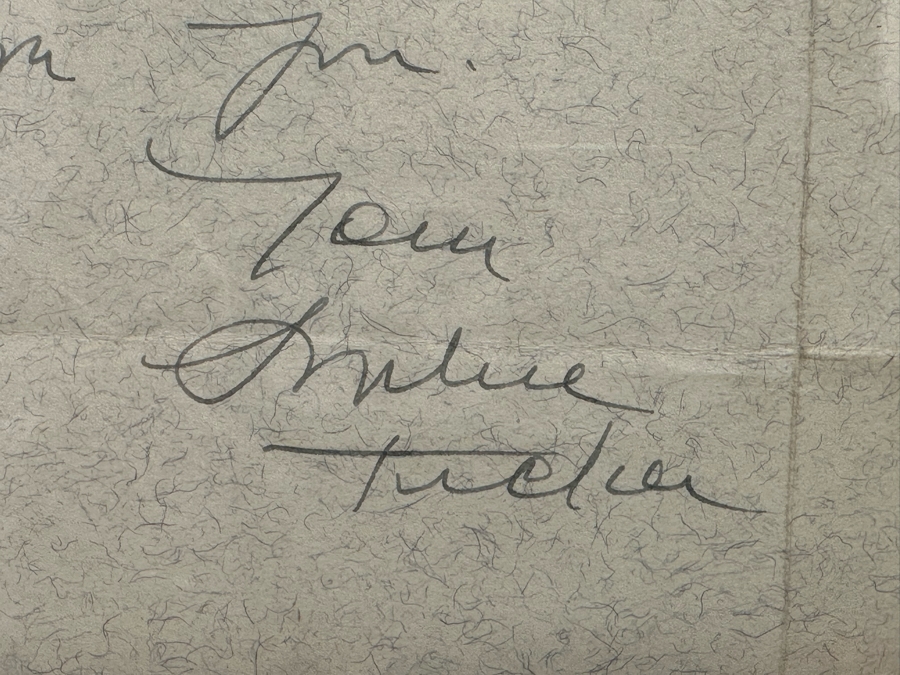 you.
Your
Sophie
Tucker